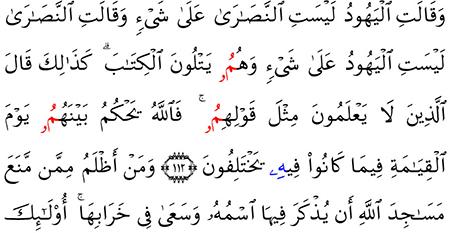 وَقَالَتِ ٱلْيَهُودُ لَيْسَتِ ٱلنَّصَٰرَىٰ عَلَىٰ شَىْءٍۢ وَقَالَتِ ٱلنَّصَٰرَىٰ
لَيْسَتِ ٱلْيَهُودُ عَلَىٰ شَىْءٍۢ وَهُمُۥ يَتْلُونَ ٱلْكِتَٰبَ ۗ كَذَٰلِكَ قَالَ
ٱلَّذِينَ لَا يَعْلَمُونَ مِثْلَ قَوْلِهِمُۥ ۚ فَٱللَّهُ يَحْكُمُ بَيْنَهُمُۥ يَوْمَ
ٱلْقِيَٰمَةِ فِيمَا كَانُوا۟ فِيهِۦ يَخْتَلِفُونَ ﴿١١٣﴾ وَمَنْ أَظْلَمُ مِمَّن مَّنَعَ
مَسَٰجِدَ ٱللَّهِ أَن يُذْكَرَ فِيهَا ٱسْمُهُۥ وَسَعَىٰ فِى خَرَابِهَا ۚ أُو۟لَٰٓئِكَ